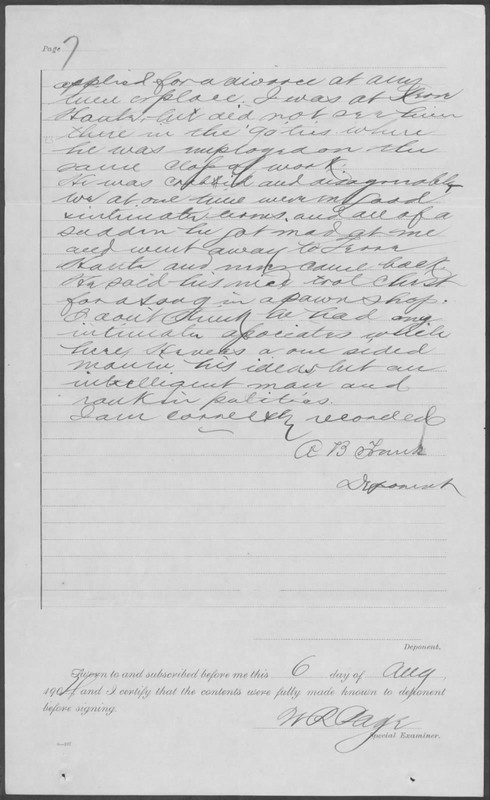 Page 7
applied for a divorce at any
time or place. I was at Terre
Haute but did not see him
there in the '90ties where
he was employed on the
same class of work.
He was and disagreeable
We at one time were on good
& intimate terms. and all of a
sudden he got mad at me
and went away to Terre
Haute and never came back.
He said his
for a song in a pawn shop.
I don't think he had any
intimate associates while
here. He was a one sided
man in his ideas but an
intelligent man and
rank in politics.
I am correctly recorded
A B
Deponent
Deponent.
Sworn to and subscribed before me this 6 day of Aug,
1904, and I certify that the contents were fully made known to deponent
before signing.
W R Page
Special Examiner.